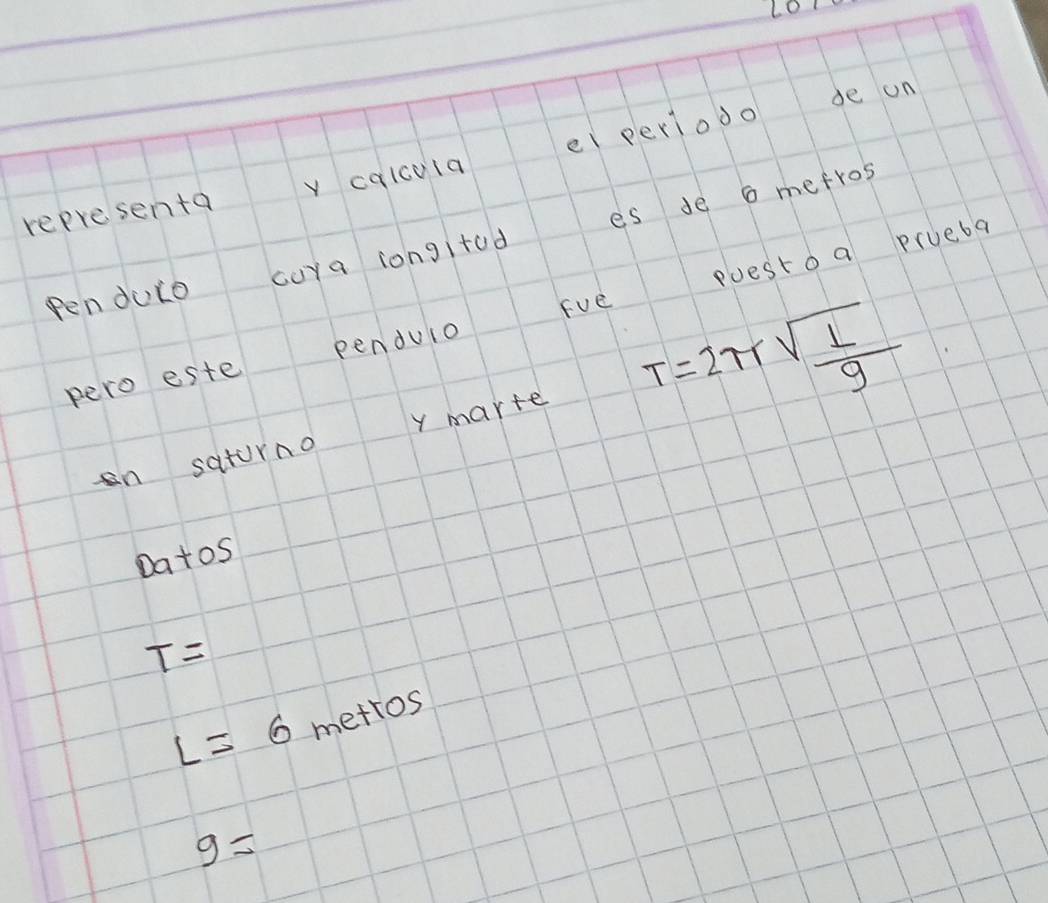 representa y calcula el periodo de un
pendulo cuya longitud es de 6 metros
pero este pendulo fue puesto a prueba
en saturno y marte T=2π√L/g
Datos
T=
L= 6 metros
g=